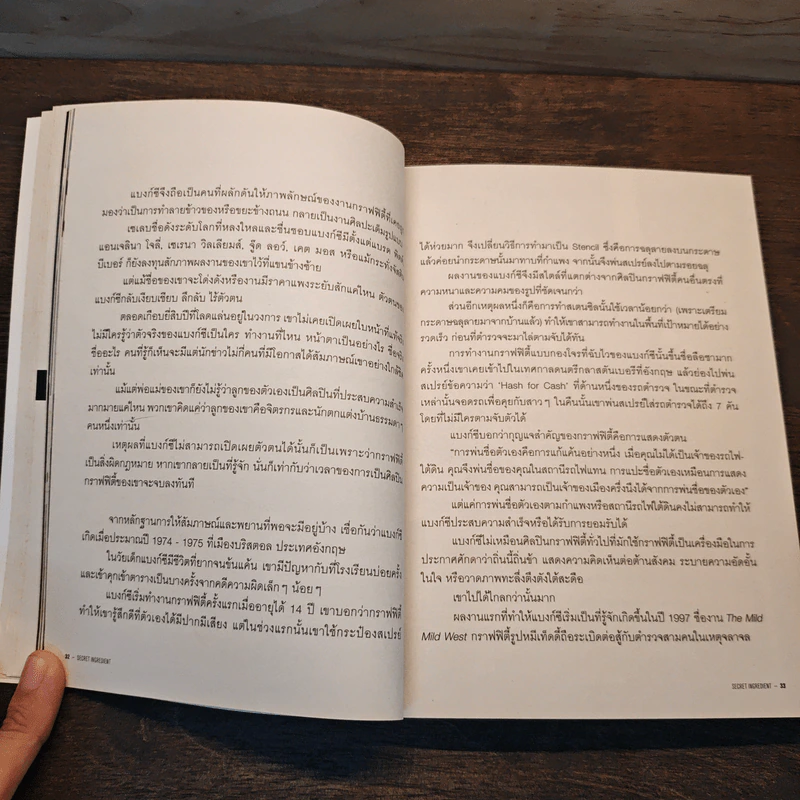 แบงก์ซีจึงถือเป็นคนที่ผลักดันให้ภาพลักษณ์ของงานกราฟฟิตี้ที่เคยถูก
มองว่าเป็นการทำลายข้าวของหรือขยะข้างถนน กลายเป็นงานศิลปะเต็มรูปแบบ
เซเลบชื่อดังระดับโลกที่หลงใหลและชื่นชอบแบงก์ซีมีตั้งแต่แบรด พิตต์
แอนเจลินา โจลี่, เซเรนา วิลเลียมส์, จู๊ด ลอว์, เคต มอส หรือแม้กระทั่งจัสติน
บีเบอร์ ก็ยังลงทุนสักภาพผลงานของเขาไว้ที่แขนข้างซ้าย
แต่แม้ชื่อของเขาจะโด่งดังหรืองานมีราคาแพงระยับสักแค่ไหน ตัวตนของ
แบงก์ซีกลับเงียบเชียบ ลึกลับ ไร้ตัวตน
ตลอดเกือบยี่สิบปีที่โลดแล่นอยู่ในวงการ เขาไม่เคยเปิดเผยใบหน้าที่แท้จริง
ไม่มีใครรู้ว่าตัวจริงของแบงก์ซีเป็นใคร ทำงานที่ไหน หน้าตาเป็นอย่างไร ชื่อจริง
ชื่ออะไร คนที่รู้ก็เห็นจะมีแต่นักข่าวไม่กี่คนที่มีโอกาสได้สัมภาษณ์เขาอย่างใกล้ชิด
เท่านั้น
แม้แต่พ่อแม่ของเขาก็ยังไม่รู้ว่าลูกของตัวเองเป็นศิลปินที่ประสบความสำเร็จ
มากมายแค่ไหน พวกเขาคิดแค่ว่าลูกของเขาคือจิตรกรและนักตกแต่งบ้านธรรมดาๆ
คนหนึ่งเท่านั้น
เหตุผลที่แบงก์ซีไม่สามารถเปิดเผยตัวตนได้นั้นก็เป็นเพราะว่ากราฟฟิตี้
เป็นสิ่งผิดกฎหมาย หากเขากลายเป็นที่รู้จัก นั่นก็เท่ากับว่าเวลาของการเป็นศิลปิน
กราฟฟิตี้ของเขาจะจบลงทันที
จากหลักฐานการให้สัมภาษณ์และพยานที่พอจะมีอยู่บ้าง เชื่อกันว่าแบงก์ซี
เกิดเมื่อประมาณปี 1974 - 1975 ที่เมืองบริสตอล ประเทศอังกฤษ
ในวัยเด็กแบงก์ซีมีชีวิตที่ยากจนข้นแค้น เขามีปัญหากับที่โรงเรียนบ่อยครั้ง
และเข้าคุกเข้าตารางเป็นบางครั้งจากคดีความผิดเล็กๆ น้อยๆ
แบงก์ซีเริ่มทำงานกราฟฟิตี้ครั้งแรกเมื่ออายุได้ 14 ปี เขาบอกว่ากราฟฟิตี้
ทำให้เขารู้สึกดีที่ตัวเองได้มีปากมีเสียง แต่ในช่วงแรกนั้นเขาใช้กระป๋องสเปรย์
32 — SECRET INGREDIENT
ได้ห่วยมาก จึงเปลี่ยนวิธีการทำมาเป็น Stencil ซึ่งคือการฉลุลายลงบนกระดาษ
แล้วค่อยนำกระดาษนั้นมาทาบที่กำแพง จากนั้นจึงพ่นสเปรย์ลงไปตามรอยฉลุ
ผลงานของแบงก์ซีจึงมีสไตล์ที่แตกต่างจากศิลปินกราฟฟิตี้คนอื่นตรงที่
ความหนาและความคมของรูปที่ชัดเจนกว่า
ส่วนอีกเหตุผลหนึ่งก็คือการทำสเตนซิลนั้นใช้เวลาน้อยกว่า (เพราะเตรียม
กระดาษฉลุลายมาจากบ้านแล้ว) ทำให้เขาสามารถทำงานในพื้นที่เป้าหมายได้อย่าง
รวดเร็ว ก่อนที่ตำรวจจะมาไล่ตามจับได้ทัน
การทำงานกราฟฟิตี้แบบกองโจรที่ฉับไวของแบงก์ซีนั้นขึ้นชื่อลือชามาก
ครั้งหนึ่งเขาเคยเข้าไปในเทศกาลดนตรีกลาสตันเบอรีที่อังกฤษ แล้วย่องไปพ่น
สเปรย์ข้อความว่า 'Hash for Cash' ที่ด้านหนึ่งของรถตำรวจ ในขณะที่ตำรวจ
เหล่านั้นจอดรถเพื่อคุยกับสาวๆ ในคืนนั้นเขาพ่นสเปรย์ใส่รถตำรวจได้ถึง 7 คัน
โดยที่ไม่มีใครตามจับตัวได้
แบงก์ซีบอกว่ากุญแจสำคัญของกราฟฟิตี้คือการแสดงตัวตน
"การพ่นชื่อตัวเองคือการแก้แค้นอย่างหนึ่ง เมื่อคุณไม่ได้เป็นเจ้าของรถไฟ-
ใต้ดิน คุณจึงพ่นชื่อของคุณในสถานีรถไฟแทน การแปะชื่อตัวเองเหมือนการแสดง
ความเป็นเจ้าของ คุณสามารถเป็นเจ้าของเมืองครึ่งนึงได้จากการพ่นชื่อของตัวเอง"
แต่แค่การพ่นชื่อตัวเองตามกำแพงหรือสถานีรถไฟใต้ดินคงไม่สามารถทำให้
แบงก์ซีประสบความสำเร็จหรือได้รับการยอมรับได้
แบงก์ซีไม่เหมือนศิลปินกราฟฟิตี้ทั่วไปที่มักใช้กราฟฟิตี้เป็นเครื่องมือในการ
ประกาศศักดาว่าถิ่นนี้ถิ่นข้า แสดงความคิดเห็นต่อด้านสังคม ระบายความอัดอั้น
ในใจ หรือวาดภาพทะลึ่งตึงตังได้สะดือ
เขาไปได้ไกลกว่านั้นมาก
ผลงานแรกที่ทำให้แบงก์ซีเริ่มเป็นที่รู้จักเกิดขึ้นในปี 1997 ชื่องาน The Mild
Mild West กราฟฟิตี้รูปหมีเท็ดดี้ถือระเบิดต่อสู้กับตำรวจสามคนในเหตุจลาจล
SECRET INGREDIENT — 33